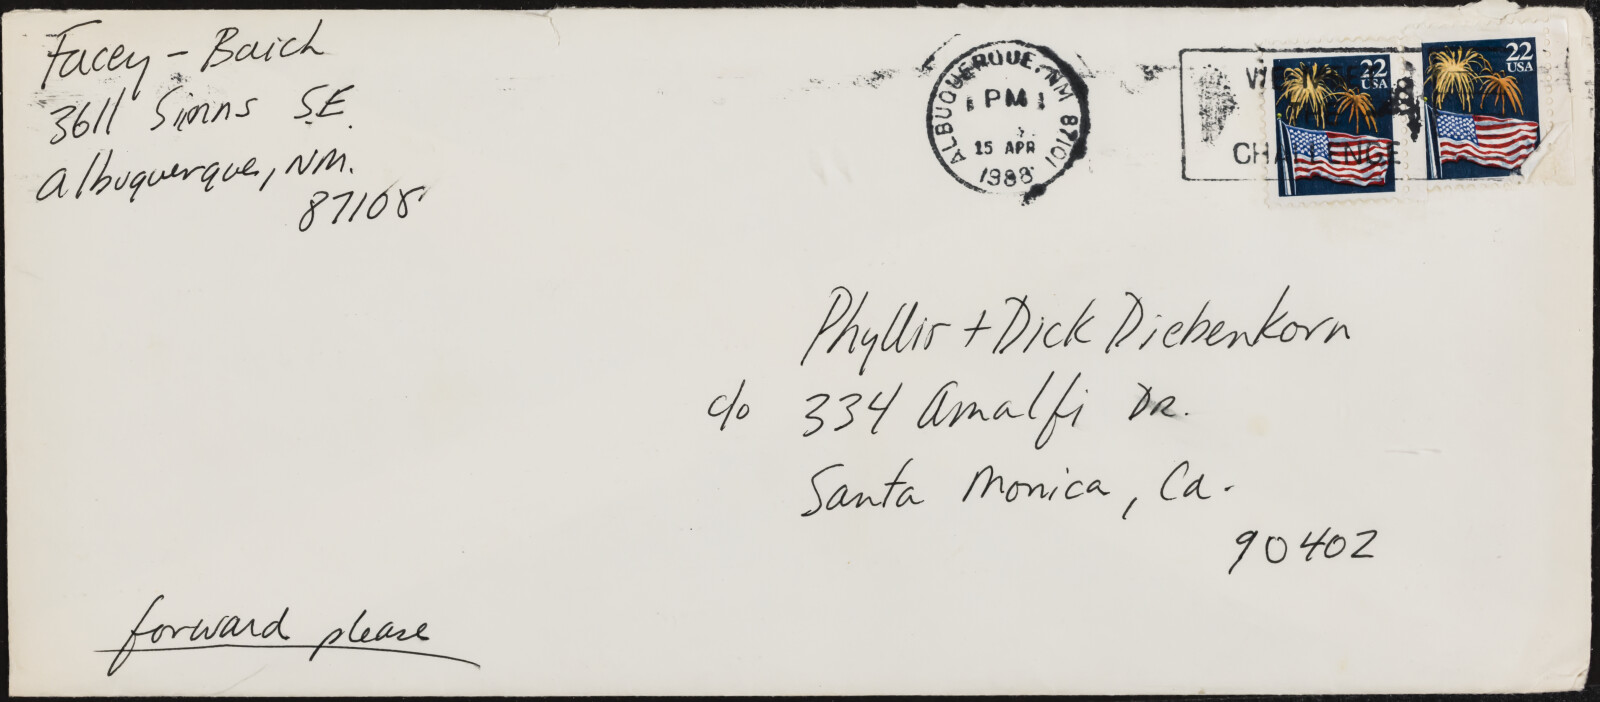 Facey - Baich
3611 Simns S.E.
Albuquerque, NM.
87108
ALBUQUERQUE, NM 87101
PM
15 APR
1988
CHALLENGE
22
USA
22
USA
Phyllis + Dick Diebenkorn
c/o 334 Amalfi Dr.
Santa Monica, Ca.
90402
forward please